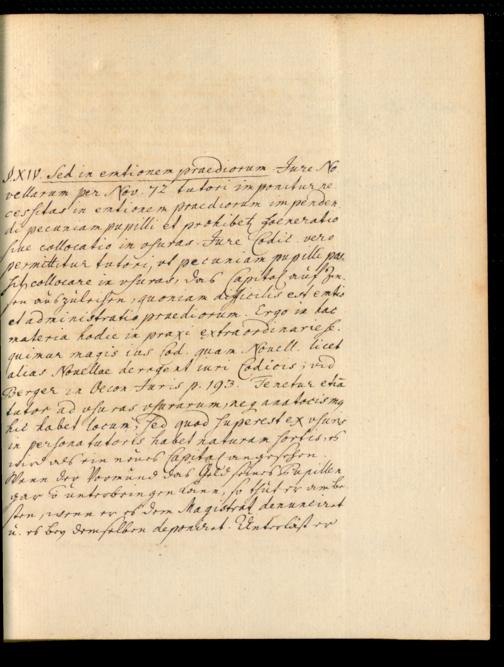 §. XIV. Sed in emtionem praediorum Jure No
vellarum per Nov. 72 tutori imponitur ne
cessitas in emtionem praediorum impenden
di pecuniam pupilli et prohibetur foeneratio
sive collocatio in usuras. Jure Codic. vero
permittitur tutori, ut pecuniam pupilli pos
sit collocare in usuras, das Capital auf Zin
sen auszuleihen, quoniam difficilis est emtio
et administratio praediorum. Ergo in hac
materia hodie in praxi extraordinarie se
quimur magis ius Cod. quam Novell. licet
alias Novellae derogent iuri Codicis; vid
Berger in Oecon Juris p. 193. Tenetur etia
tutor ad usuras usurarum, neq anatocismq
hic habet locum, sed quod superest ex usuris
in persona tutoris habet naturam sortis, es
wird als ein neues Capital angesehen.
Wenn der Vormund das Geld seines Pupillen
gar nicht unterbringen kann, so thut er am be
sten, wenn er es dem Magistrat denunciret
u. es bey demselben deponiret. Unterläst er